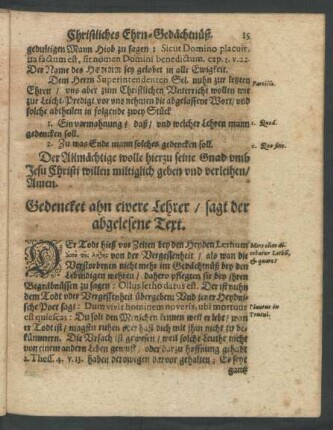 Christliches Ehrn-Gedächtnüß. 15
gedultigen Mann Hiob zu sagen: Sicut Domino placuit,
ita factum est, sit nomen Domini benedictum. cap. 1. v. 22.
Der Name des HERRN sey gelobet in alle Ewigkeit.
Dem Herrn Superintendenten Sel. nuhn zur letzten
Ehren / vns aber zum Christlichen Vnterricht wollen wir
zur Leich-Predigt vor vns nehmen die abgelassene Wort / vnd
solche abtheilen in folgende zwey Stück
Partitio.
1. Ein vermahnung / daß / vnd welcher Lehren mann
gedencken soll.
1. Quod.
2. Zu was Ende mann solches gedencken soll.
2. Quo fine.
Der Allmächtige wolle hierzu seine Gnad vmb
Jesu Christi willen miltiglich geben vnd verleihen /
Amen.
Gedencket ahn ewere Lehrer / sagt der
abgelesene Text.
DEr Todt hieß vor Zeiten bey den Heyden Lethum
von der Vergessenheit / als wan die
Verstorbenen nicht mehr im Gedächtnüß bey den
Lebendigen wehren / dahero pflegten sie bey ihren
Begräbnüssen zu sagen: Ollus letho datus est. Der ist nuhn
dem Todt oder Vergessenheit übergeben: Vnd jener Heydni-
sche Poet sagt: Dum vivit hominem noveris, ubi mortuus
est quiescas: Du solt den Menschen kennen weil er lebt / wan
er Todt ist / magstu ruhen oder hast dich mit ihm nicht zu be-
kümmern. Die Ursach ist gewesen / weil solche Leuthe nicht
von einem andern Leben gewust / oder darzu hoffnung gehabt
2. Thess. 4. v. 13. haben derowegen darvor gehalten: Es seye
gantz
Mors olim di-
cebatur Lethū,
& quare?
Plautus in
Trucul.